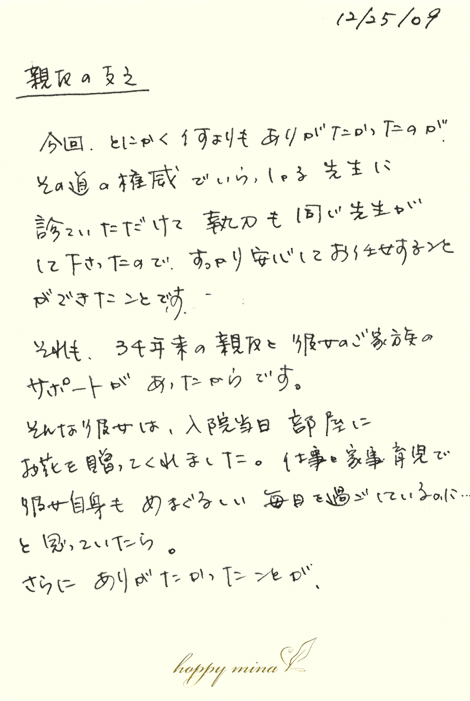 12/25/09
親友の支え
今回、とにかく何よりもありがたかったのが、
その道の権威でいらっしゃる先生に
診ていただけて執刀も同じ先生が
して下さったので、すっかり安心してお任せすること
ができたことです。
それも、34年来の親友と彼女のご家族の
サポートがあったからです。
そんな彼女は、入院当日部屋に
お花を贈ってくれました。仕事と家事育児で
彼女自身もめまぐるしい毎日を過ごしているのに…
と思っていたら。
さらにありがたかったことが、
happy mina